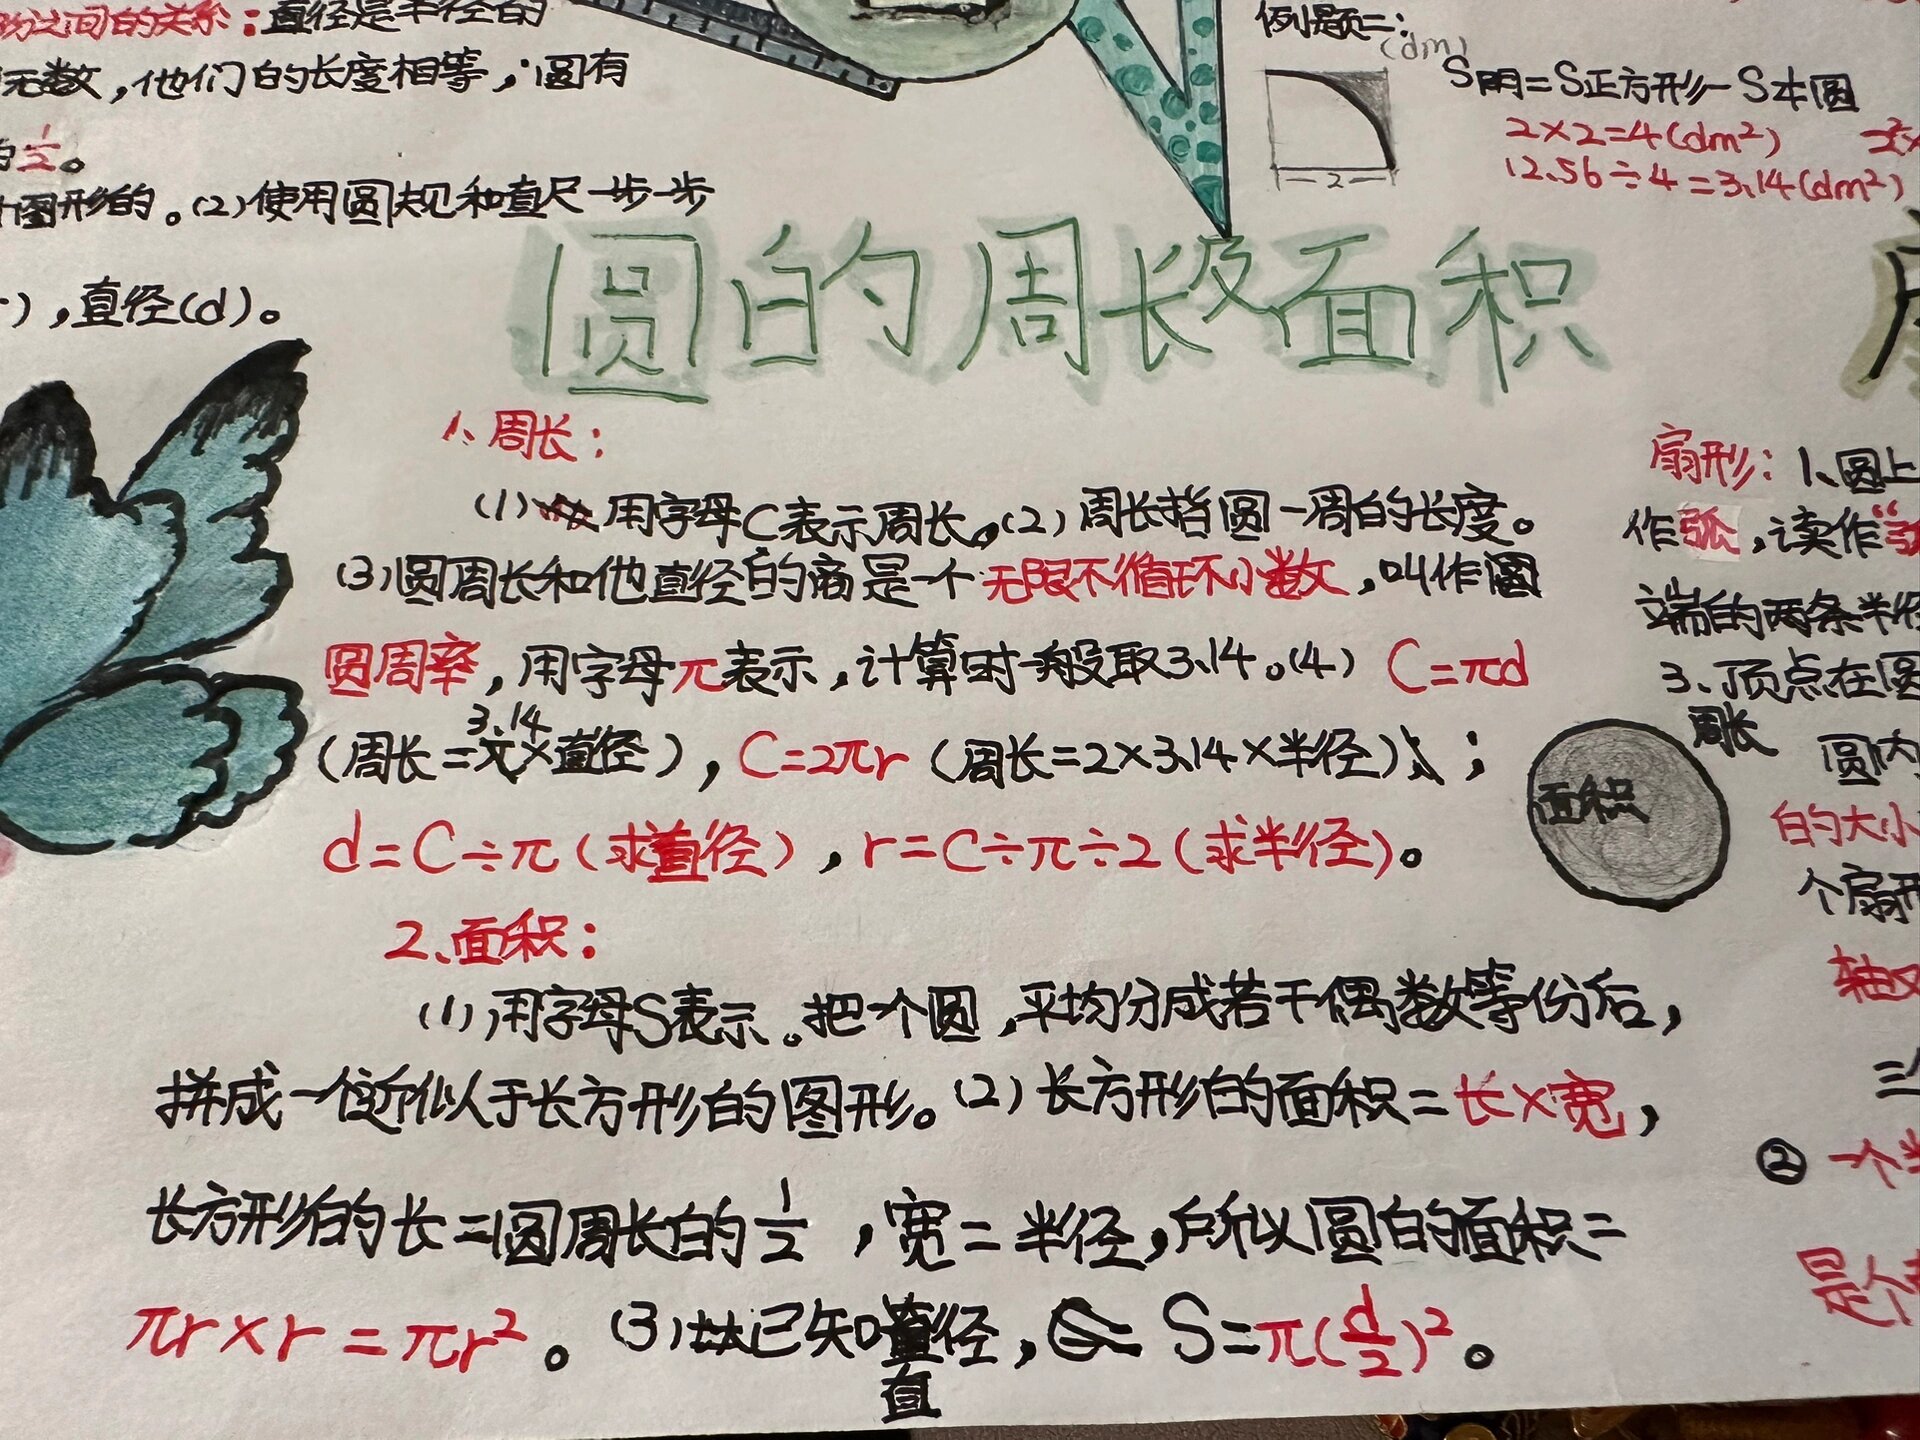 之间的关系：直径是半径的
无数，他们的长度相等，圆有
的1/2。
图形的。(2)使用圆规和直尺一步一步
)，直径(d)。
例题二：
(dm)
2
S阴=S正方形-S本圆
2×2=4(dm²)
12.56÷4=3.14(dm²)
圆的周长及面积
1、周长：
(1)用字母C表示周长。(2)周长指圆一周的长度。
(3)圆周长和他直径的商是一个无限不循环小数，叫作圆
圆周率，用字母π表示，计算时一般取3.14。(4) C=πd
3.14
(周长=π×直径)，C=2πr(周长=2×3.14×半径)；
d=C÷π(求直径)，r=C÷π÷2(求半径)。
2、面积：
(1)用字母S表示。把一个圆，平均分成若干偶数等份后，
拼成一个近似于长方形的图形。(2)长方形的面积=长×宽，
长方形的长=圆周长的1/2，宽=半径，所以圆的面积=
πr×r=πr²。(3)已知直径，S=π(d/2)²。
直
周长
面积
扇形：1、圆上
作弧，读作“弧
端的两条半径
3、顶点在圆
圆内
的大小
个扇形
轴
三
② 一个
是个